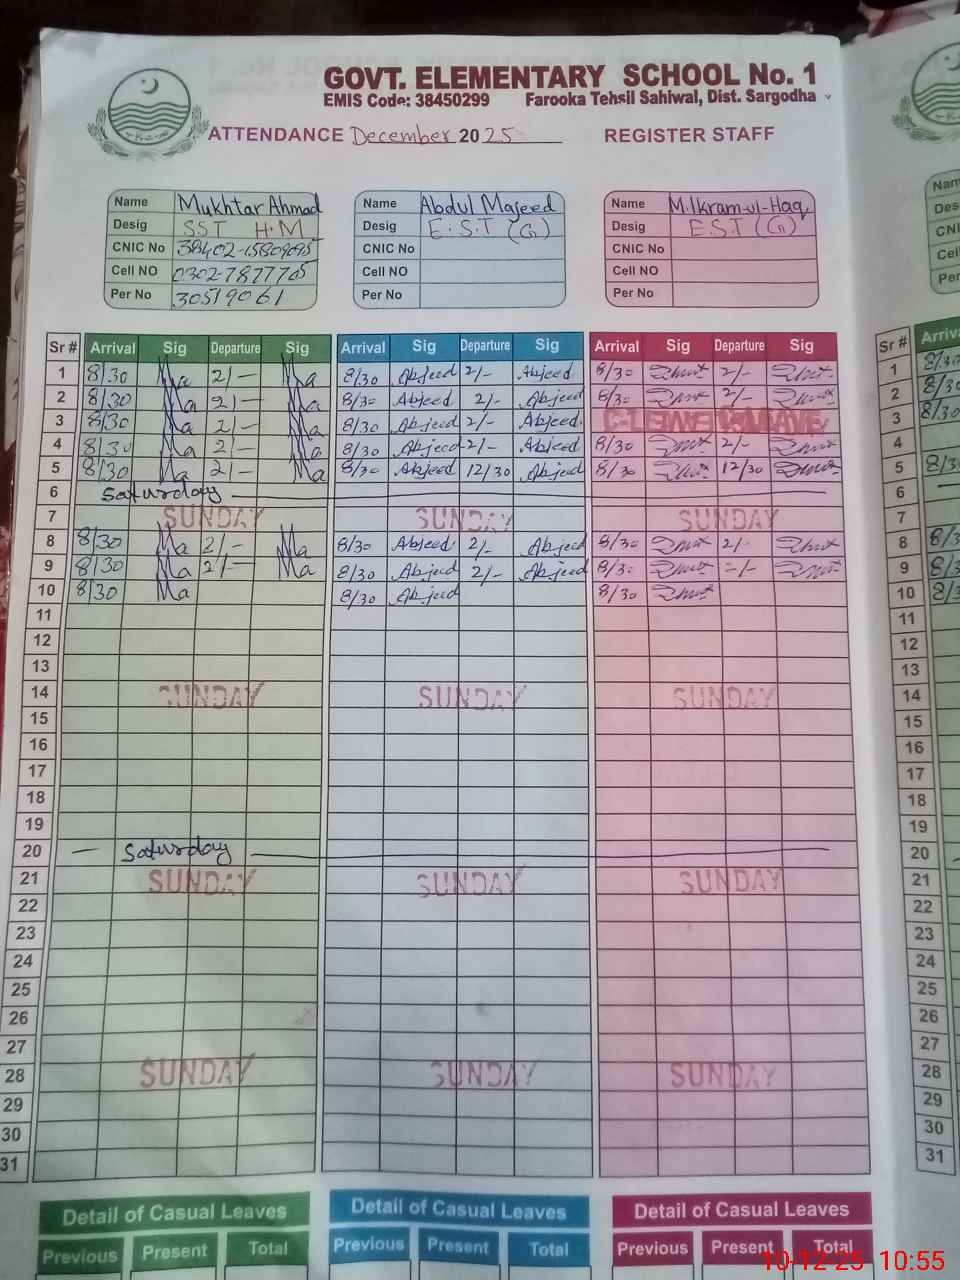 GOVT. ELEMENTARY SCHOOL No. 1
EMIS Code: 38450299 Farooka Tehsil Sahiwal, Dist. Sargodha
ATTENDANCE December 2025 REGISTER STAFF
Name Mukhtar Ahmad Name Abdul Majeed Name M.Ikram-ul-Haq
Desig SST H.M Desig E.S.T (G) Desig E.S.T (G)
CNIC No CNIC No CNIC No
Cell NO 0302-7877705 Cell NO Cell NO
Per No 30519061 Per No Per No
Sr # Arrival Sig Departure Sig Arrival Sig Departure Sig Arrival Sig Departure Sig Sr #
1 8/30 Ma 2/- Ma 8/30 Abjeed 2/- Abjeed 8/30 2/- 1 8/30
2 8/30 Ma 2/- Ma 8/30 Abjeed 2/- Abjeed 8/30 2/- 2 8/30
3 8/30 Ma 2/- Ma 8/30 Abjeed 2/- Abjeed 3 8/30
4 8/30 Ma 2/- Ma 8/30 Abjeed 2/- Abjeed 8/30 2/- 4
5 8/30 Ma 2/- Ma 8/30 Abjeed 12/30 Abjeed 8/30 12/30 5 8/30
6 Saturday 6
7 SUNDAY SUNDAY SUNDAY 7
8 8/30 Ma 2/- Ma 8/30 Abjeed 2/- Abjeed 8/30 2/- 8
9 8/30 Ma 2/- Ma 8/30 Abjeed 2/- Abjeed 8/30 9
10 8/30 Ma 8/30 Abjeed 8/30 10
11 11
12 12
13 13
14 SUNDAY SUNDAY SUNDAY 14
15 15
16 16
17 17
18 18
19 19
20 — Saturday 20
21 SUNDAY SUNDAY SUNDAY 21
22 22
23 23
24 24
25 25
26 26
27 27
28 SUNDAY SUNDAY SUNDAY 28
29 29
30 30
31 31
Detail of Casual Leaves Detail of Casual Leaves Detail of Casual Leaves
Previous Present Total Previous Present Total Previous Present Total
10-12-25 10:55